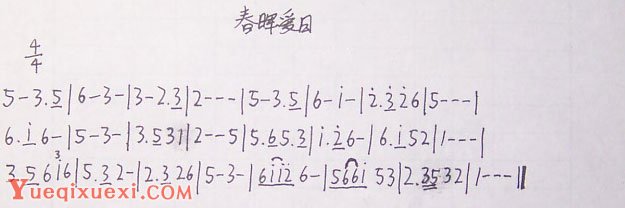 春晖爱日
4/4
5-3.5|6-3-|3-2.3|2---|5-3.5|6-i-|2.326|5---|
6.i6-|5-3-|3.531|2--5|5.65.3|i.26-|6.i52|1---|
3.56i6|5.32-|2.326|5-3-|6ii26-|566i53|2.3532|1---‖
Yueqixuexi.com(乐器学习网)